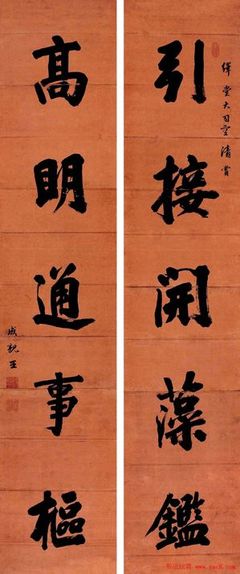 繹堂大司空清賞
引接開藻鑑
高明通事樞
成親王